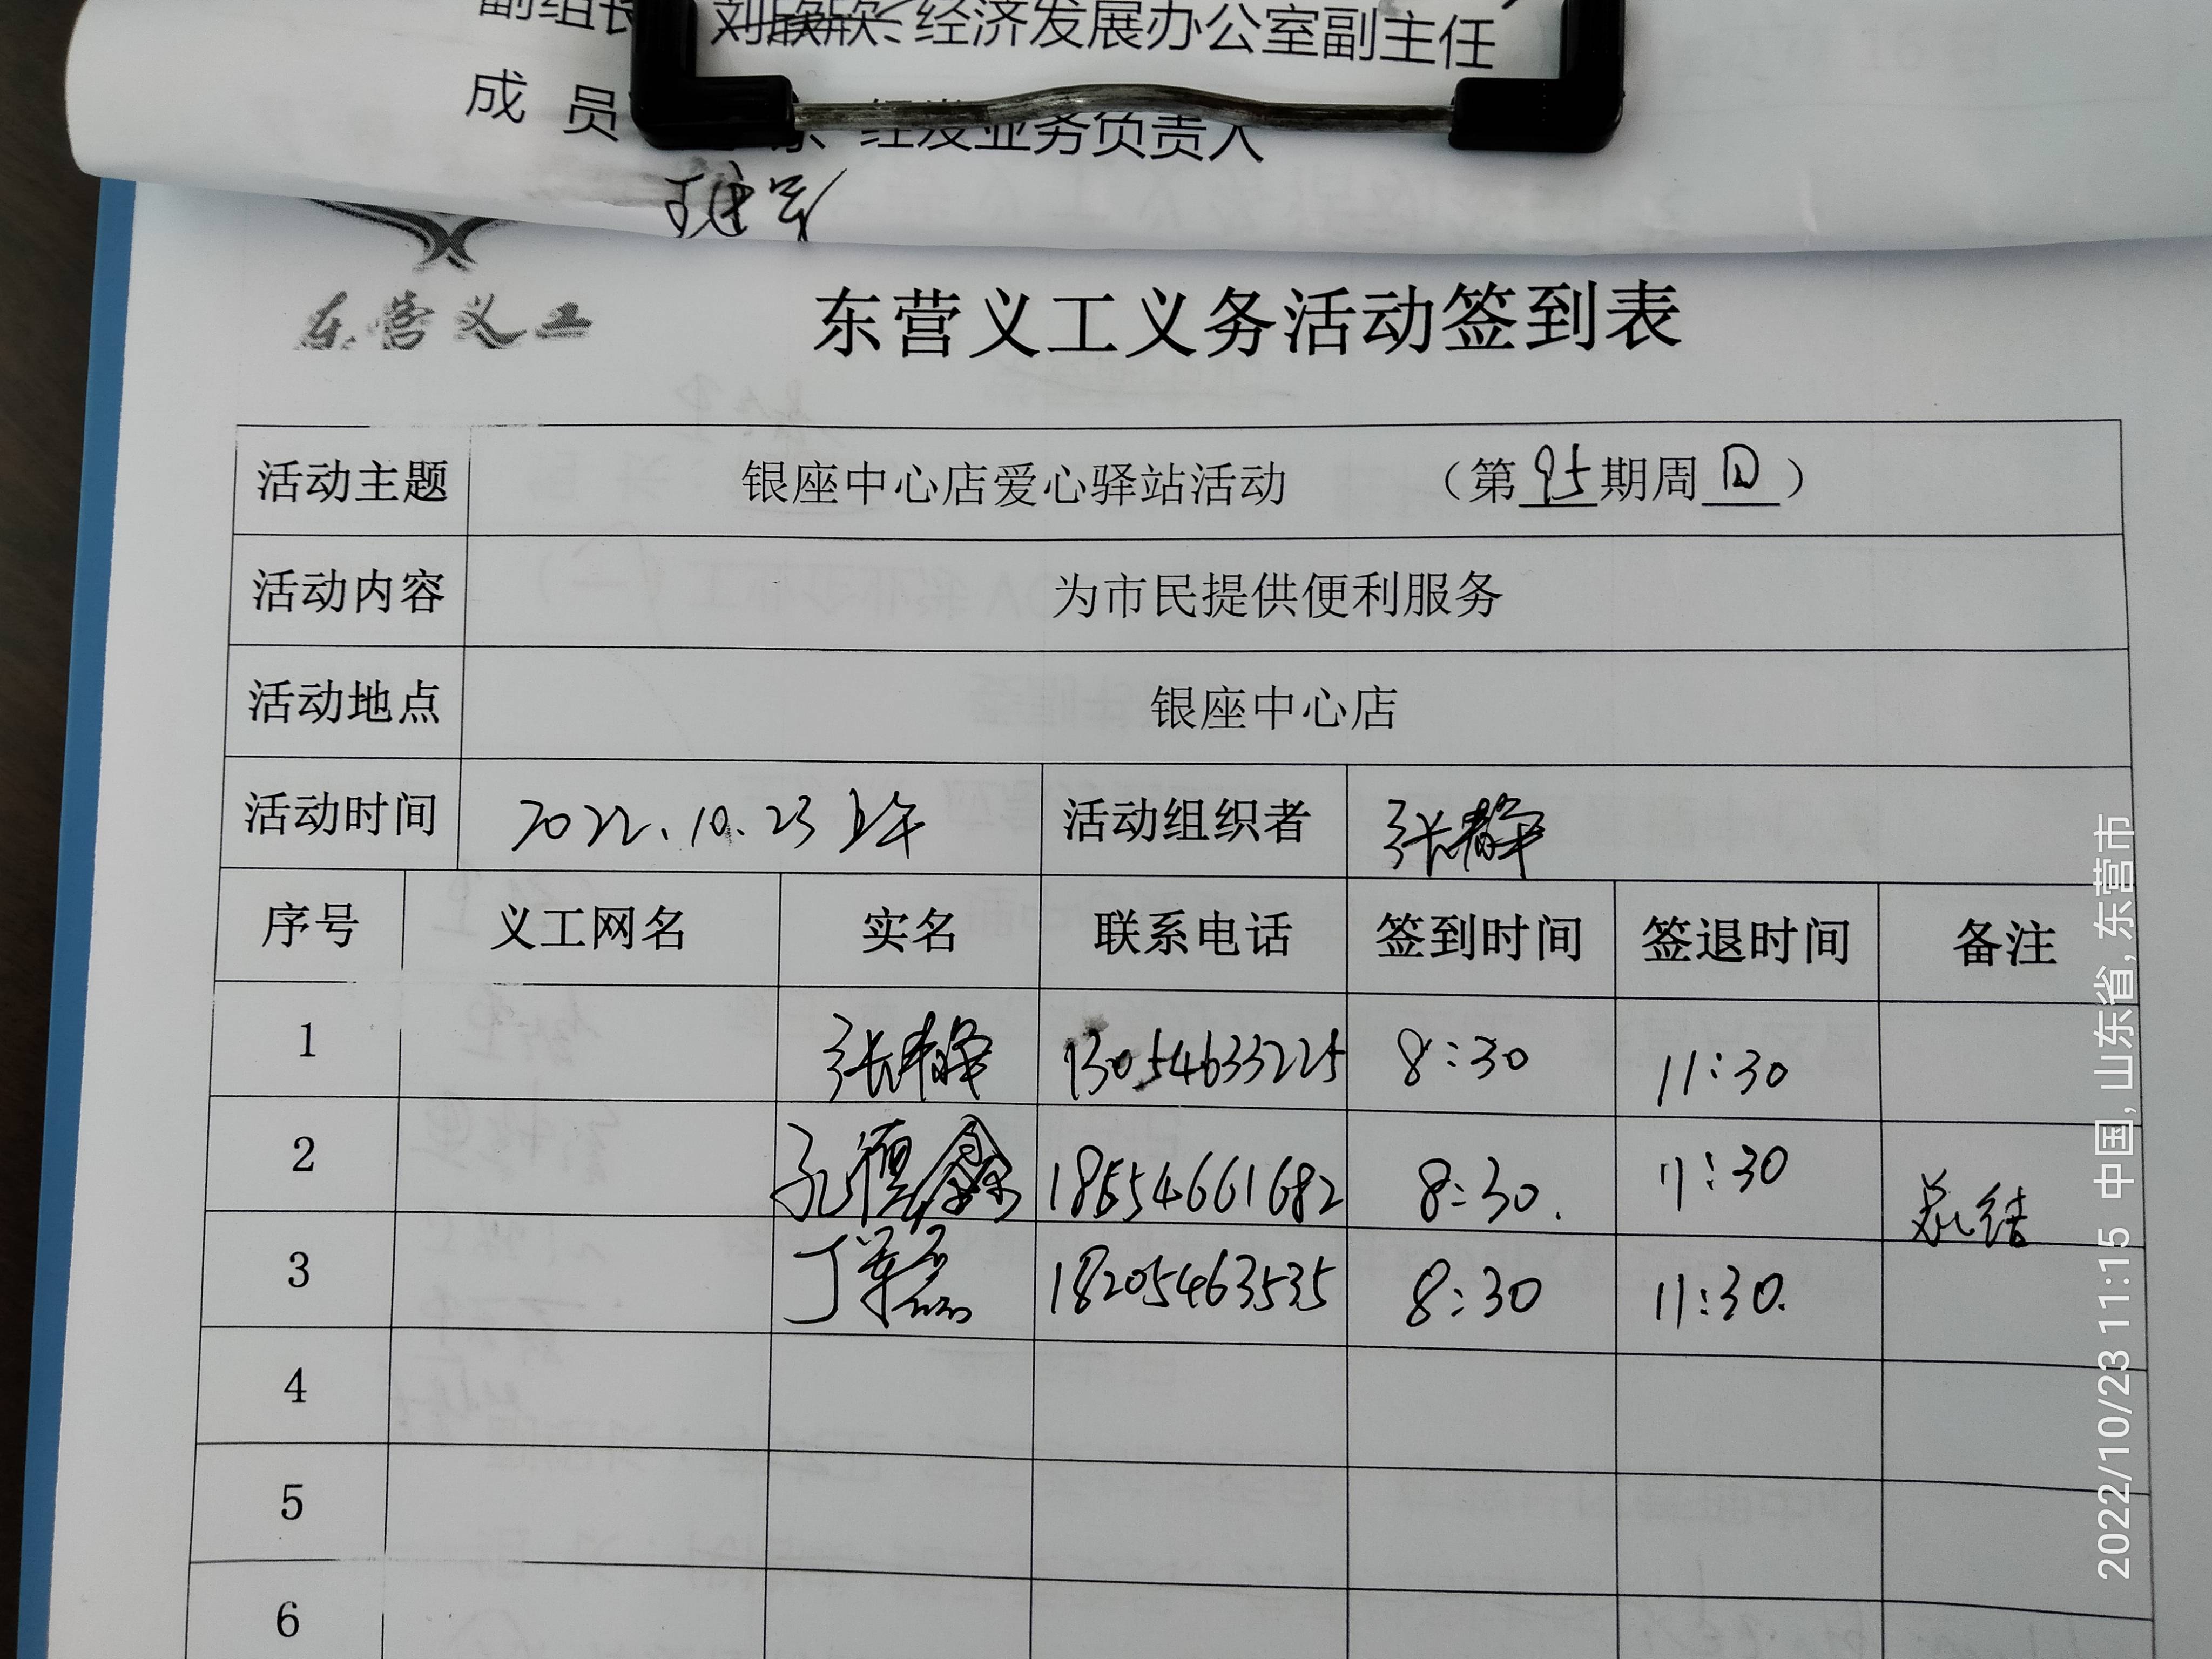 副组长 刘欣欣 经济发展办公室副主任
成 员 经发业务负责人
东营义工
东营义工义务活动签到表
活动主题 银座中心店爱心驿站活动 （第95期周日）
活动内容 为市民提供便利服务
活动地点 银座中心店
活动时间 2022.10.23 上午 活动组织者 张静
序号 义工网名 实名 联系电话 签到时间 签退时间 备注
1 张静 13054633225 8:30 11:30
2 孔德鑫 18654661682 8:30. 11:30 总结
3 丁军磊 18205463535 8:30 11:30.
4
5
6
2022/10/23 11:15 中国, 山东省, 东营市